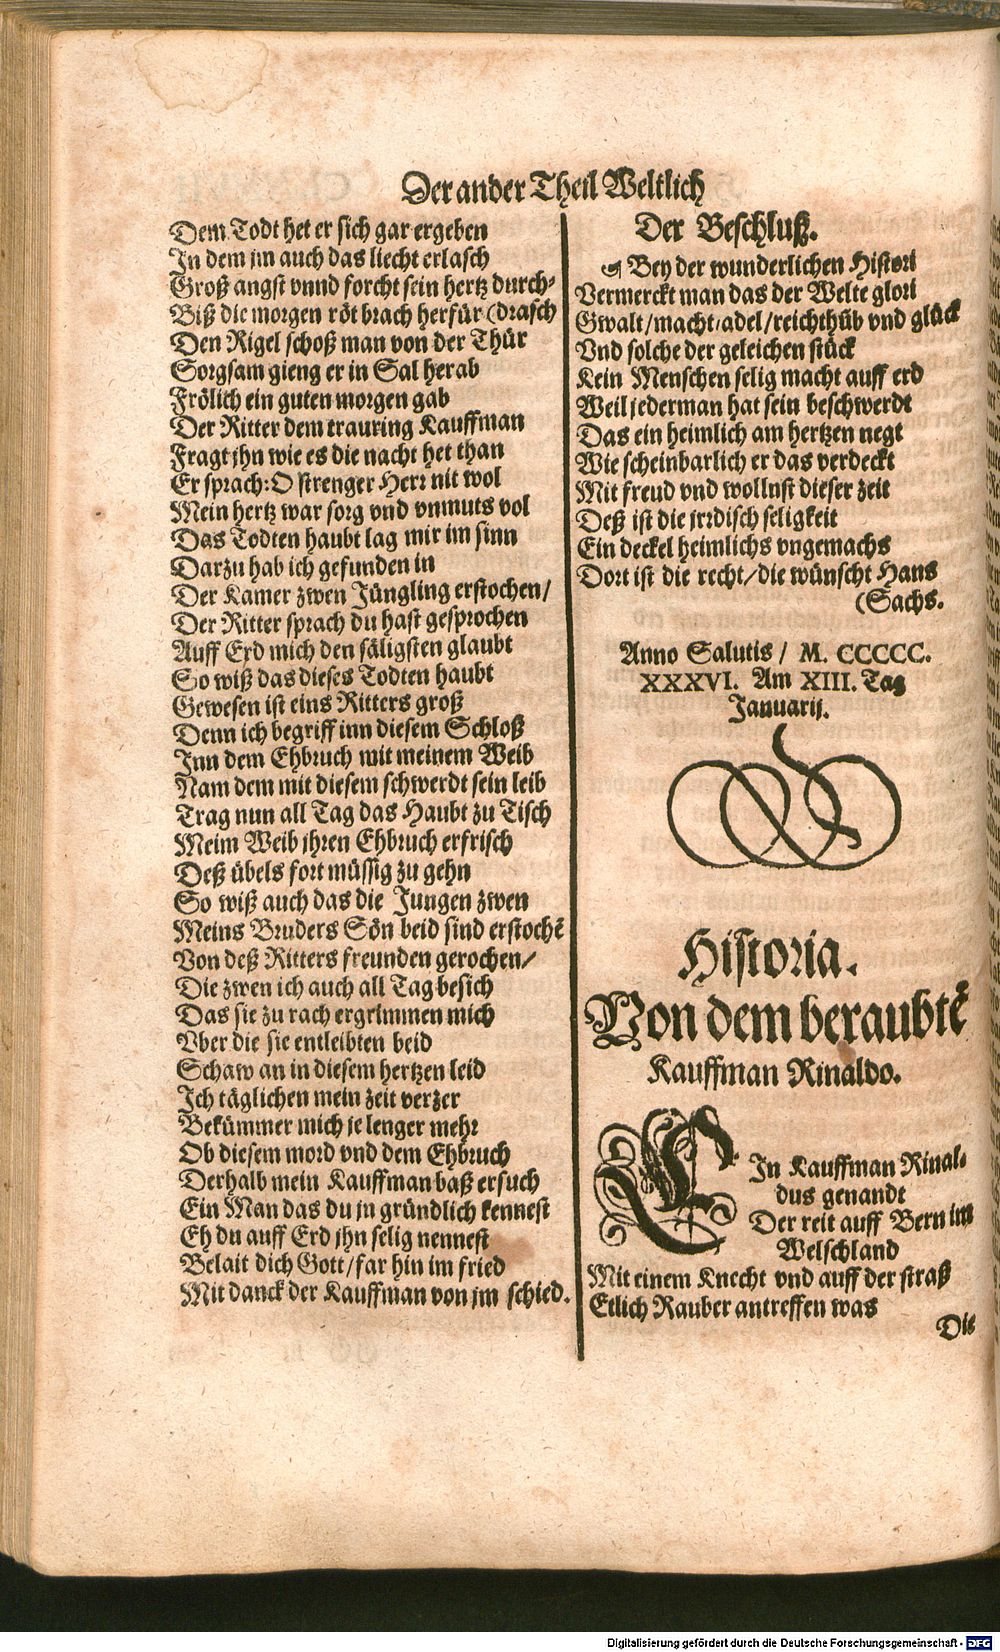 Der ander Theil Weltlich
Dem Todt het er sich gar ergeben
In dem jm auch das liecht erlasch
Groß angst vnnd forcht sein hertz durch-
Biß die morgen röt brach herfür (drasch
Den Rigel schoß man von der Thür
Sorgsam gieng er in Sal herab
Frölich ein guten morgen gab
Der Ritter dem trauring Kauffman
Fragt jhn wie es die nacht het than
Er sprach: O strenger Herr nit wol
Mein hertz war sorg vnd vnmuts vol
Das Todten haubt lag mir im sinn
Darzu hab ich gefunden in
Der Kamer zwen Jüngling erstochen/
Der Ritter sprach du hast gesprochen
Auff Erd mich den säligsten glaubt
So wiß das dieses Todten haubt
Gewesen ist eins Ritters groß
Denn ich begriff inn diesem Schloß
Inn dem Ehbruch mit meinem Weib
Nam dem mit diesem schwerdt sein leib
Trag nun all Tag das Haubt zu Tisch
Meim Weib jhren Ehbruch erfrisch
Deß übels fort müssig zu gehn
So wiß auch das die Jungen zwen
Meins Bruders Sön beid sind erstochē
Von deß Ritters freunden gerochen/
Die zwen ich auch all Tag besich
Das sie zu rach ergrimmen mich
Vber die sie entleibten beid
Schaw an in diesem hertzen leid
Ich täglichen mein zeit verzer
Bekümmer mich je lenger mehr
Ob diesem mord vnd dem Ehbruch
Derhalb mein Kauffman baß ersuch
Ein Man das du jn gründlich kennest
Eh du auff Erd jhn selig nennest
Belait dich Gott/far hin im fried
Mit danck der Kauffman von jm schied.
Der Beschluß.
Bey der wunderlichen Histori
Vermerckt man das der Welte glori
Gwalt/macht/adel/reichthüb vnd glück
Vnd solche der geleichen stück
Kein Menschen selig macht auff erd
Weil jederman hat sein beschwerdt
Das ein heimlich am hertzen negt
Wie scheinbarlich er das verdeckt
Mit freud vnd wollust dieser zeit
Deß ist die jrrdisch seligkeit
Ein deckel heimlichs vngemachs
Dort ist die recht/die wünscht Hans
(Sachs.
Anno Salutis / M. CCCCC.
XXXVI. Am XIII. Tag
Januarij.
Historia.
Von dem beraubtē
Kauffman Rinaldo.
EIn Kauffman Rinal-
dus genandt
Der reit auff Bern im
Welschland
Mit einem Knecht vnd auff der straß
Etlich Rauber antreffen was
Die
Digitalisierung gefördert durch die Deutsche Forschungsgemeinschaft - DFG